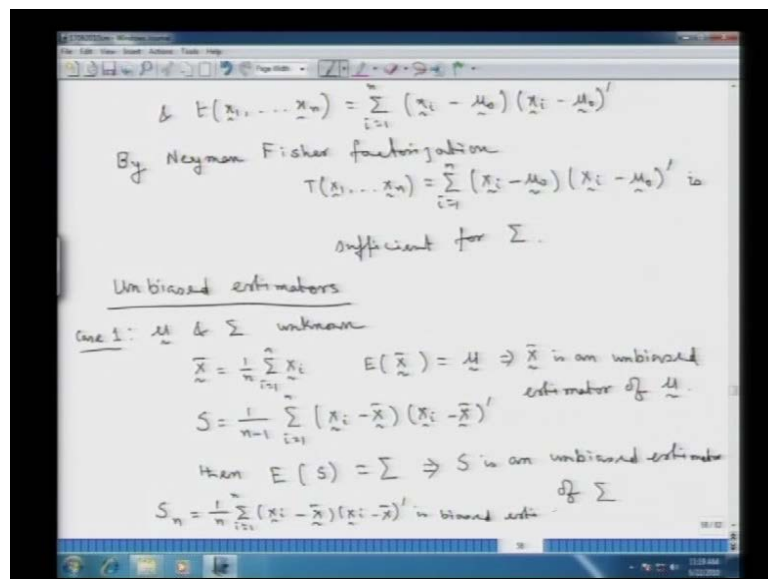 File Edit View Insert Actions Tools Help
Page Width
& t(x̰₁, ... x̰ₙ) = Σᵢ₌₁ⁿ (x̰ᵢ - μ̰₀)(x̰ᵢ - μ̰₀)'
By Neyman Fisher factorization
T(x̰₁, ... x̰ₙ) = Σᵢ₌₁ⁿ (x̰ᵢ - μ̰₀)(x̰ᵢ - μ̰₀)' is
sufficient for Σ.
Unbiased estimators
Case 1: μ̰ & Σ unknown
x̰̄ = 1/n Σᵢ₌₁ⁿ x̰ᵢ E(x̰̄) = μ̰ ⇒ x̰̄ is an unbiased
estimator of μ̰.
S = 1/(n-1) Σᵢ₌₁ⁿ (x̰ᵢ - x̰̄)(x̰ᵢ - x̰̄)'
then E(S) = Σ ⇒ S is an unbiased estimator
of Σ
Sₙ = 1/n Σᵢ₌₁ⁿ (x̰ᵢ - x̰̄)(x̰ᵢ - x̰̄)' is biased esti